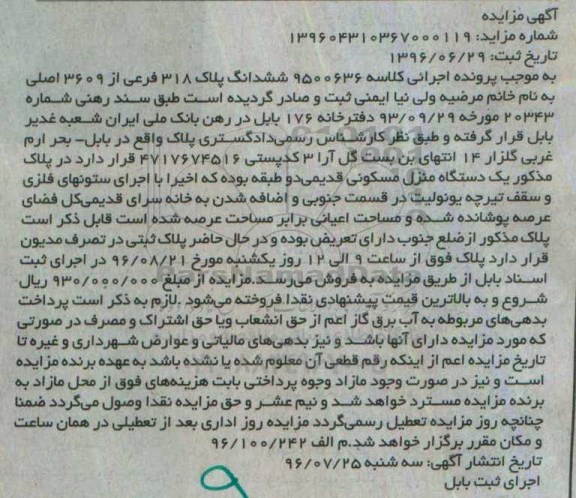 آگهی مزایده
شماره مزاید: ۱۳۹۶۰۴۳۱۰۳۶۷۰۰۰۱۱۹
تاریخ ثبت: ۱۳۹۶/۰۶/۲۹
به موجب پرونده اجرائی کلاسه ۹۵۰۰۶۳۶ ششدانگ پلاک ۳۱۸ فرعی از ۳۶۰۹ اصلی
به نام خانم مرضیه ولی نیا ایمنی ثبت و صادر گردیده است طبق سند رهنی شماره
۲۰۳۴۳ مورخه ۹۳/۰۹/۲۹ دفترخانه ۱۷۶ بابل در رهن بانک ملی ایران شعبه غدیر
بابل قرار گرفته و طبق نظر کارشناس رسمی‌دادگستری پلاک واقع در بابل- بحر ارم
غربی گلزار ۱۴ انتهای بن بست گل آرا ۳ کدپستی ۴۷۱۷۶۷۴۵۱۶ قرار دارد در پلاک
مذکور یک دستگاه منزل مسکونی قدیمی‌دو طبقه بوده که اخیرا با اجرای ستونهای فلزی
و سقف تیرچه یونولیت در قسمت جنوبی و اضافه شدن به خانه سرای قدیمی‌کل فضای
عرصه پوشانده شده و مساحت اعیانی برابر مساحت عرصه شده است قابل ذکر است
پلاک مذکور از ضلع جنوب دارای تعریض بوده و در حال حاضر پلاک ثبتی در تصرف مدیون
قرار دارد پلاک فوق از ساعت ۹ الی ۱۲ روز یکشنبه مورخ ۹۶/۰۸/۲۱ در اجرای ثبت
اسناد بابل از طریق مزایده به فروش می‌رسد.مزایده از مبلغ ۹۳۰/۰۰۰/۰۰۰ ریال
شروع و به بالاترین قیمت پیشنهادی نقدا فروخته می‌شود .لازم به ذکر است پرداخت
بدهی‌های مربوطه به آب برق گاز اعم از حق انشعاب ویا حق اشتراک و مصرف در صورتی
که مورد مزایده دارای آنها باشد و نیز بدهی‌های مالیاتی و عوارض شهرداری و غیره تا
تاریخ مزایده اعم از اینکه رقم قطعی آن معلوم شده یا نشده باشد به عهده برنده مزایده
است و نیز در صورت وجود مازاد وجوه پرداختی بابت هزینه‌های فوق از محل مازاد به
برنده مزایده مسترد خواهد شد و نیم عشر و حق مزایده نقدا وصول می‌گردد ضمنا
چنانچه روز مزایده تعطیل رسمی‌گردد مزایده روز اداری بعد از تعطیلی در همان ساعت
و مکان مقرر برگزار خواهد شد.م الف ۹۶/۱۰۰/۲۴۲
تاریخ انتشار آگهی: سه شنبه ۹۶/۰۷/۲۵
اجرای ثبت بابل